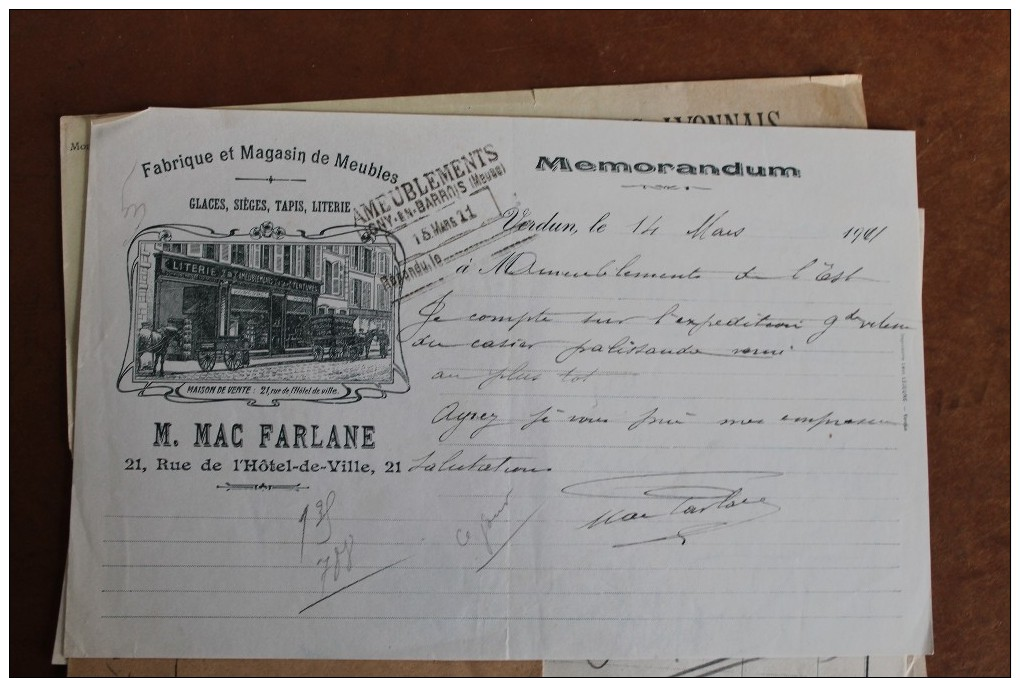 LYONNAIS
Fabrique et Magasin de Meubles
GLACES, SIÈGES, TAPIS, LITERIE
LITERIE AMEUBLEMENTS TENTURES
MAISON DE VENTE : 21, rue de l'Hôtel de ville.
M. MAC FARLANE
21, Rue de l'Hôtel-de-Ville, 21
AMEUBLEMENTS
GNY-EN-BARROIS (Meuse)
15 MARS 11
Répondu, le
Memorandum
Verdun, le 14 Mars 1911
à M Ameublements de l'Est
Je compte sur l'expedition
du casier palissandre verni
au plus tot
Agrez je vous prie mes empressees
Salutations
Mac Farlane
ce jour